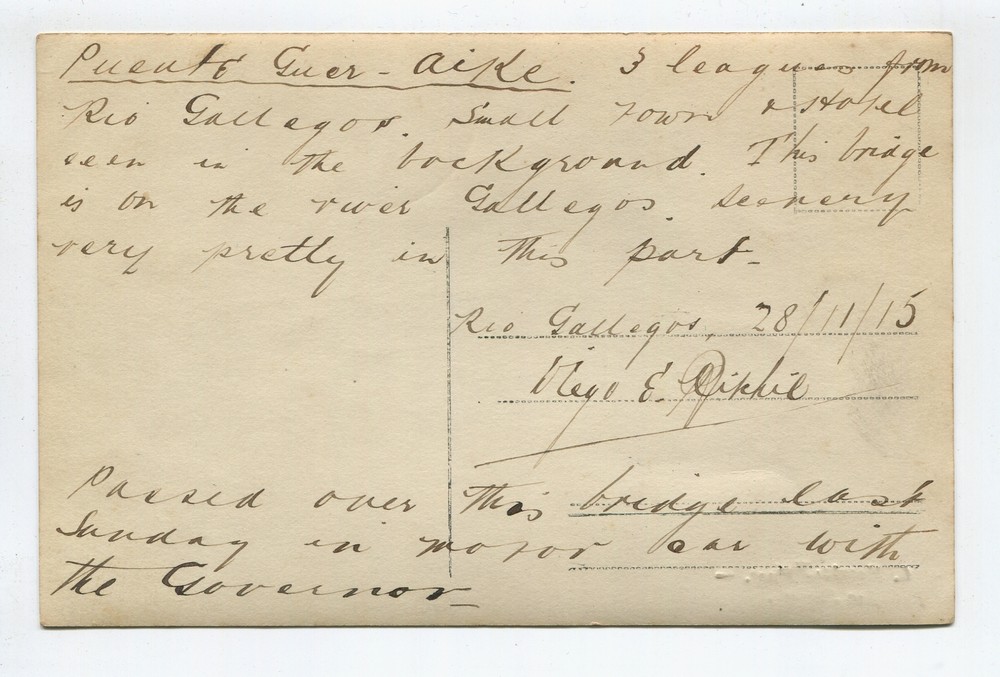 Puente Guer-Aike. 3 leagues from
Rio Gallegos. Small town & Hotel
seen in the background. This bridge
is on the river Gallegos. Scenery
very pretty in this part-
Rio Gallegos, 28/11/15
Diego E.
Passed over this bridge last
Sunday in motor car with
the Governor-